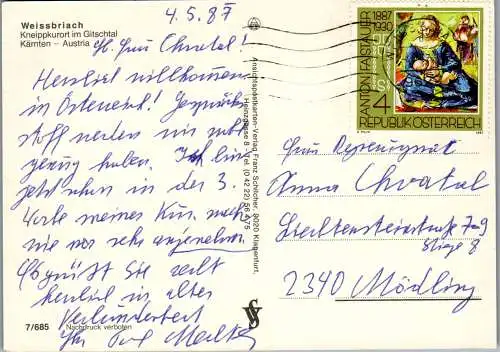 Weissbriach
Kneippkurort im Gitschtal
Kärnten – Austria
4.5.87
Frau Chvatal!
Herzlich willkommen
in Österreich! Gespräch
stoff werden wir
genug haben. Ich bin
jetzt schon in der 3.
meines Kur, nach
wie vor sehr angenehm.
Sie
herzlich in alter
Verbundenheit
Ihr
7/685 Nachdruck verboten
Ansichtspostkarten-Verlag Franz Schilcher, 9020 Klagenfurt,
Heinzgasse 8 – Tel. (0 42 22) 56 4 75
1887
1930
ANTON FAISTAUER
S 4
REPUBLIK ÖSTERREICH
Frau
Anna Chvatal
Liechtensteinstraße 7-9
Stiege 8
2340 Mödling